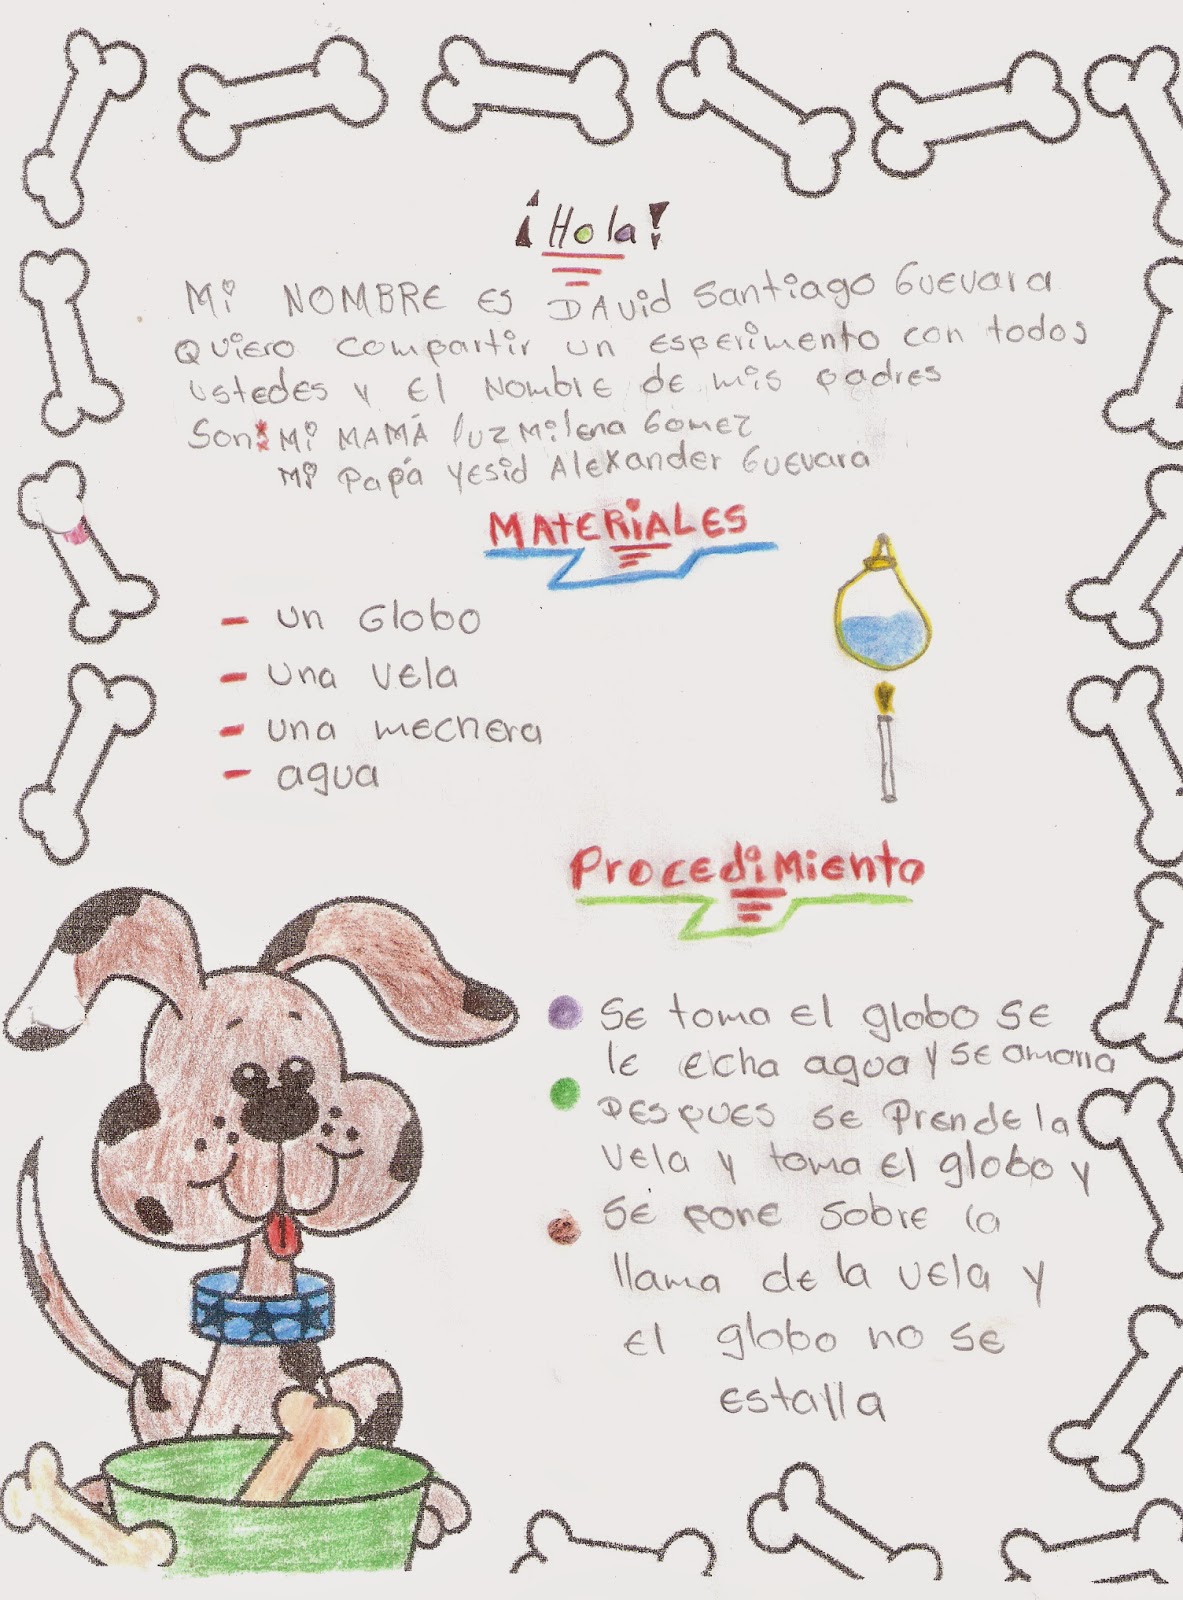 ¡Hola!
Mi NOMBRE ES DAVid Santiago Guevara
Quiero compartir un esperimento con todos
ustedes y el Nombre de mis padres
Son: Mi MAMÁ luz Milena Gomez
Mi Papá Yesid Alexander Guevara
MATERiALES
- un Globo
- una vela
- una mechera
- agua
ProcediMiento
Se toma el globo se
le echa agua y se amarra
Despues se Prende la
vela y toma el globo y
se pone sobre la
llama de la vela y
el globo no se
estalla